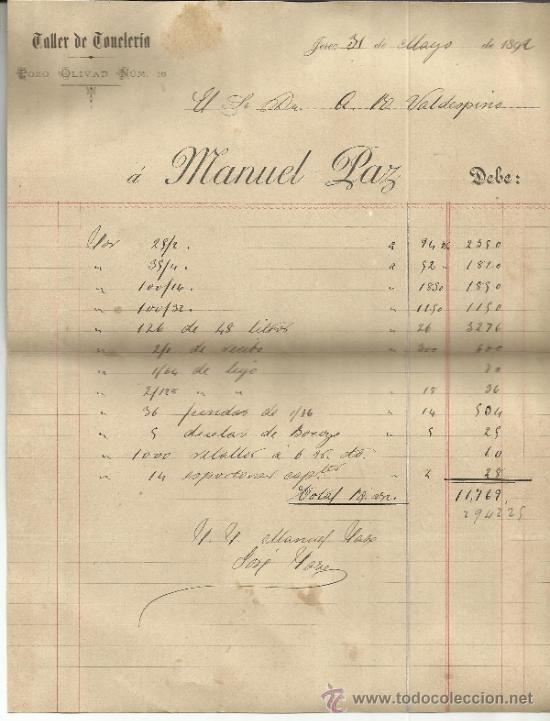 Taller de Tonelería
Pozo Olivar Núm. 10
Jerez 31 de Mayo de 1892
El Sr Dn. A. R. Valdespino
á Manuel Paz Debe:
Por 25/2. a 94 2350
" 35/4. a 52 1820
" 100/16. " 1850 1850
" 100/32. " 1150 1150
" 126 de 48 litros " 26 3276
" 2/1 de recibo " 300 600
" 1/64 de lujo
" 2/128 " " " 18 36
" 36 fundas de 1/16 " 14 504
" 5 " 5 25
" 1000 á 6 rs.
" 14 " 2 28
Total R. vn. 11,769
2942 25
P. P. Manuel Paz
José
www.todocoleccion.net